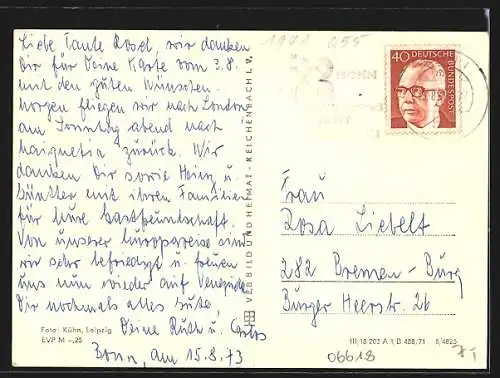 Liebe Tante Rosel, wir danken
Dir für Deine Karte vom 3.8.
mit den guten Wünschen.
Morgen fliegen wir nach London
am Sonntag abend nach
Maiquetia zurück. Wir
danken Dir sowie Heinz u.
Günther mit ihren Familien
für Eure Gastfreundschaft.
Von unserer Europareise sind
wir sehr befriedigt u. freuen
uns nun wieder auf Venezuela.
Dir nochmals alles Gute,
Deine Ruth u.
Bonn, am 15.8.73
Foto: Kühn, Leipzig
EVP M –,25
VEB BILD UND HEIMAT · REICHENBACH I. V.
1978 655
40 DEUTSCHE
BUNDESPOST
Frau
Rosa Liebelt
282 Bremen-Burg
Burger Heerstr. 26
III/18/203 A 1/B 488/71 8/4625
06618